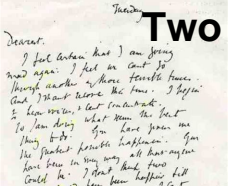 Tuesday
Two
Dearest,
I feel certain that I am going
mad again: I feel we can't go
through another of those terrible times.
And I shant recover this time. I begin
to hear voices, & cant concentrate.
So I am doing what seems the best
thing to do. You have given me
the greatest possible happiness. You
have been in every way all that anyone
could be. I dont think two
have been happier till